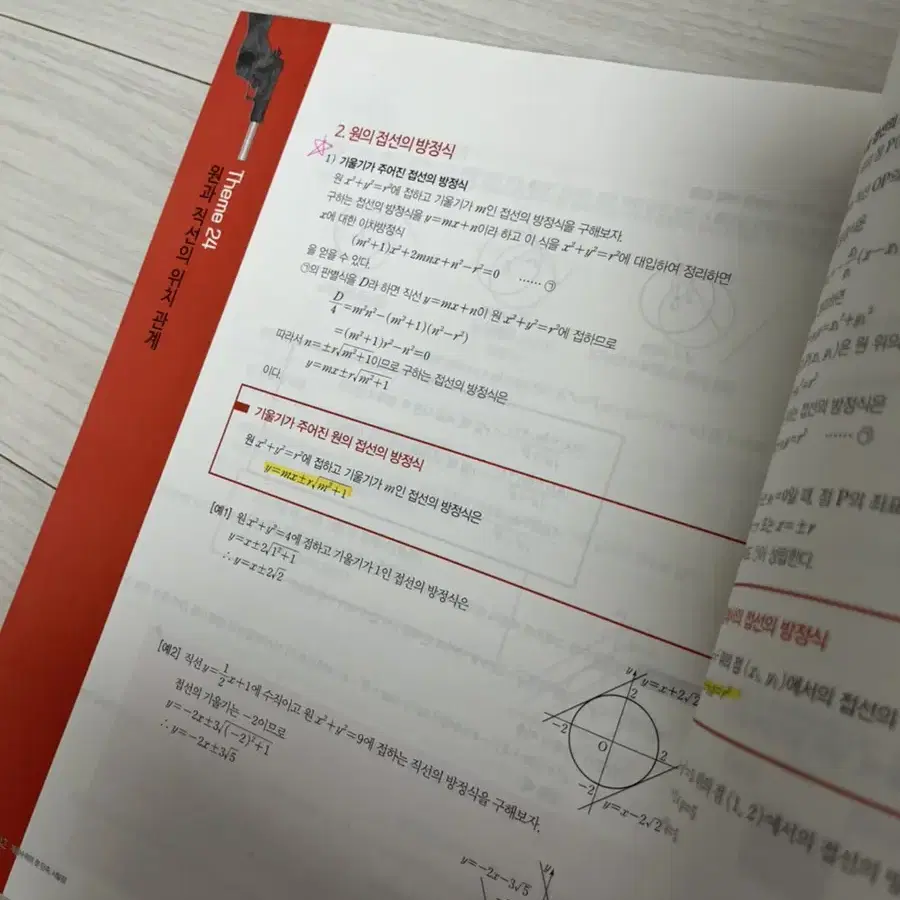 Theme 24
원과 직선의 위치 관계
2. 원의 접선의 방정식
1) 기울기가 주어진 접선의 방정식
원 x²+y²=r²에 접하고 기울기가 m인 접선의 방정식을 구해보자.
구하는 접선의 방정식을 y=mx+n이라 하고 이 식을 x²+y²=r²에 대입하여 정리하면
x에 대한 이차방정식
(m²+1)x²+2mnx+n²-r²=0 ······ ㉠
을 얻을 수 있다.
㉠의 판별식을 D라 하면 직선 y=mx+n이 원 x²+y²=r²에 접하므로
D/4=m²n²-(m²+1)(n²-r²)
=(m²+1)r²-n²=0
따라서 n=±r√(m²+1)이므로 구하는 접선의 방정식은
y=mx±r√(m²+1)
이다.
기울기가 주어진 원의 접선의 방정식
원 x²+y²=r²에 접하고 기울기가 m인 접선의 방정식은
y=mx±r√(m²+1)
[예1] 원 x²+y²=4에 접하고 기울기가 1인 접선의 방정식은
y=x±2√(1²+1)
∴ y=x±2√2
[예2] 직선 y=1/2x+1에 수직이고 원 x²+y²=9에 접하는 직선의 방정식을 구해보자.
접선의 기울기는 -2이므로
y=-2x±3√((-2)²+1)
∴ y=-2x±3√5
y
y=x+2√2
2
-2
O
2
-2
y=x-2√2
y=-2x-3√5
y
은 원 위의
접선의 방정식은
······ ㉡
=0일 때, 점 P의 좌표
x=±r
도 성립한다.
접선의 방정식
점 (x₁, y₁)에서의 접선의
점 (1, 2)에서의 접선의